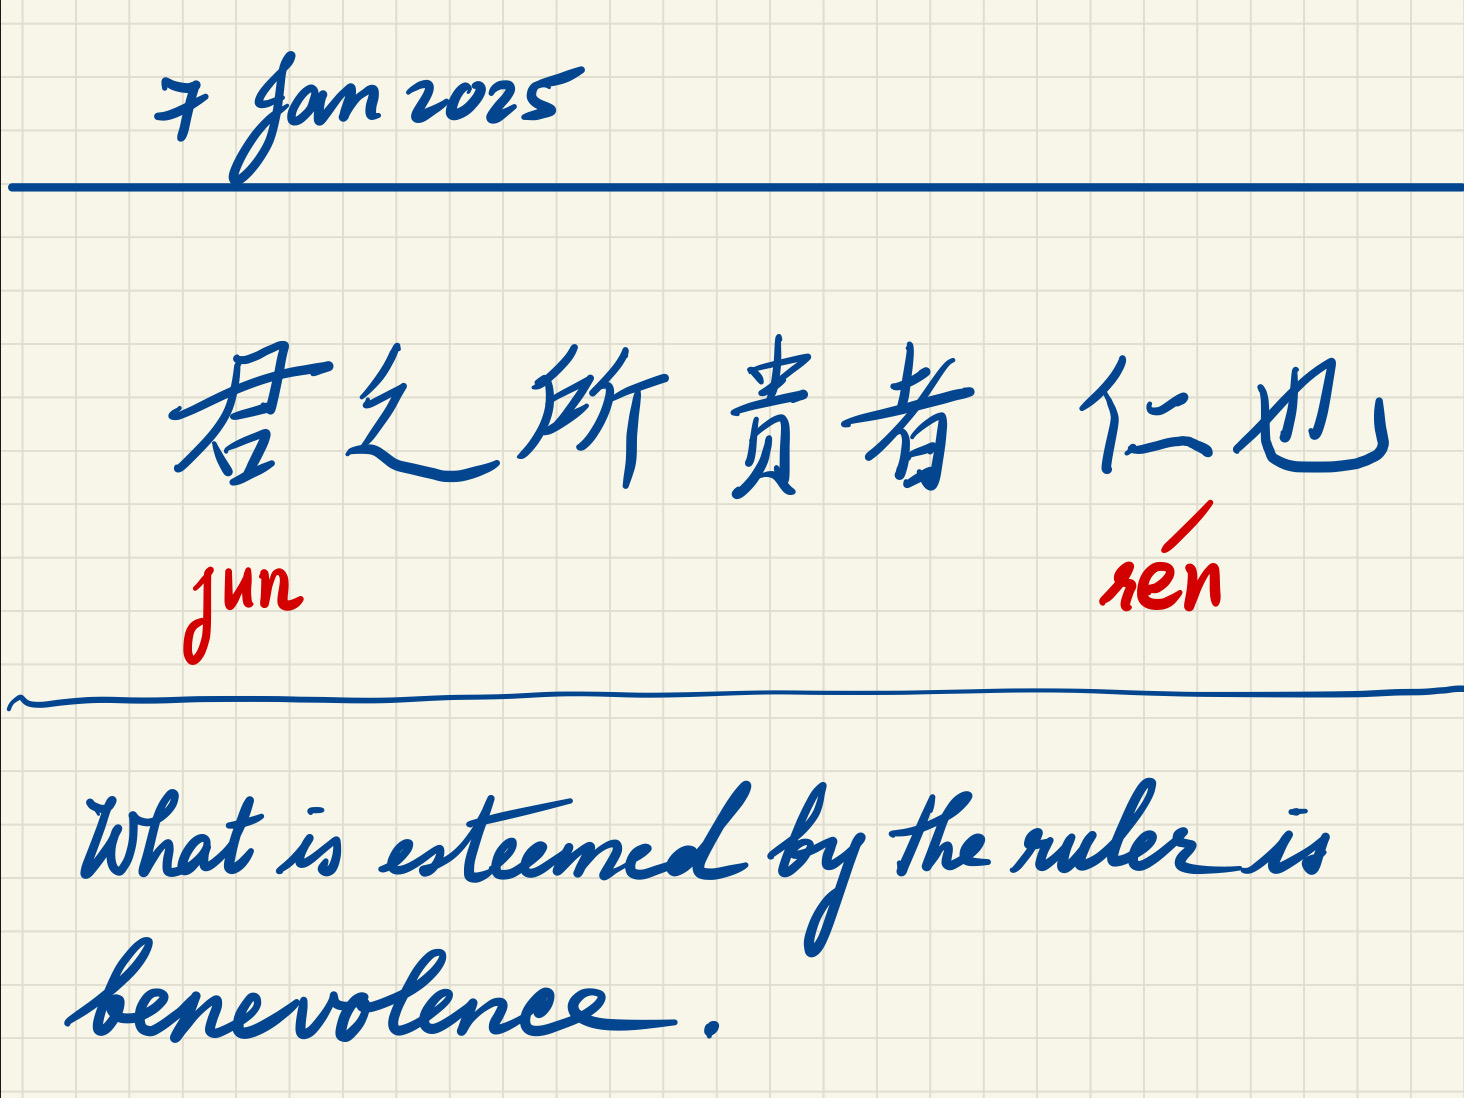 7 Jan 2025
君之所貴者仁也
jun rén
What is esteemed by the ruler is
benevolence.